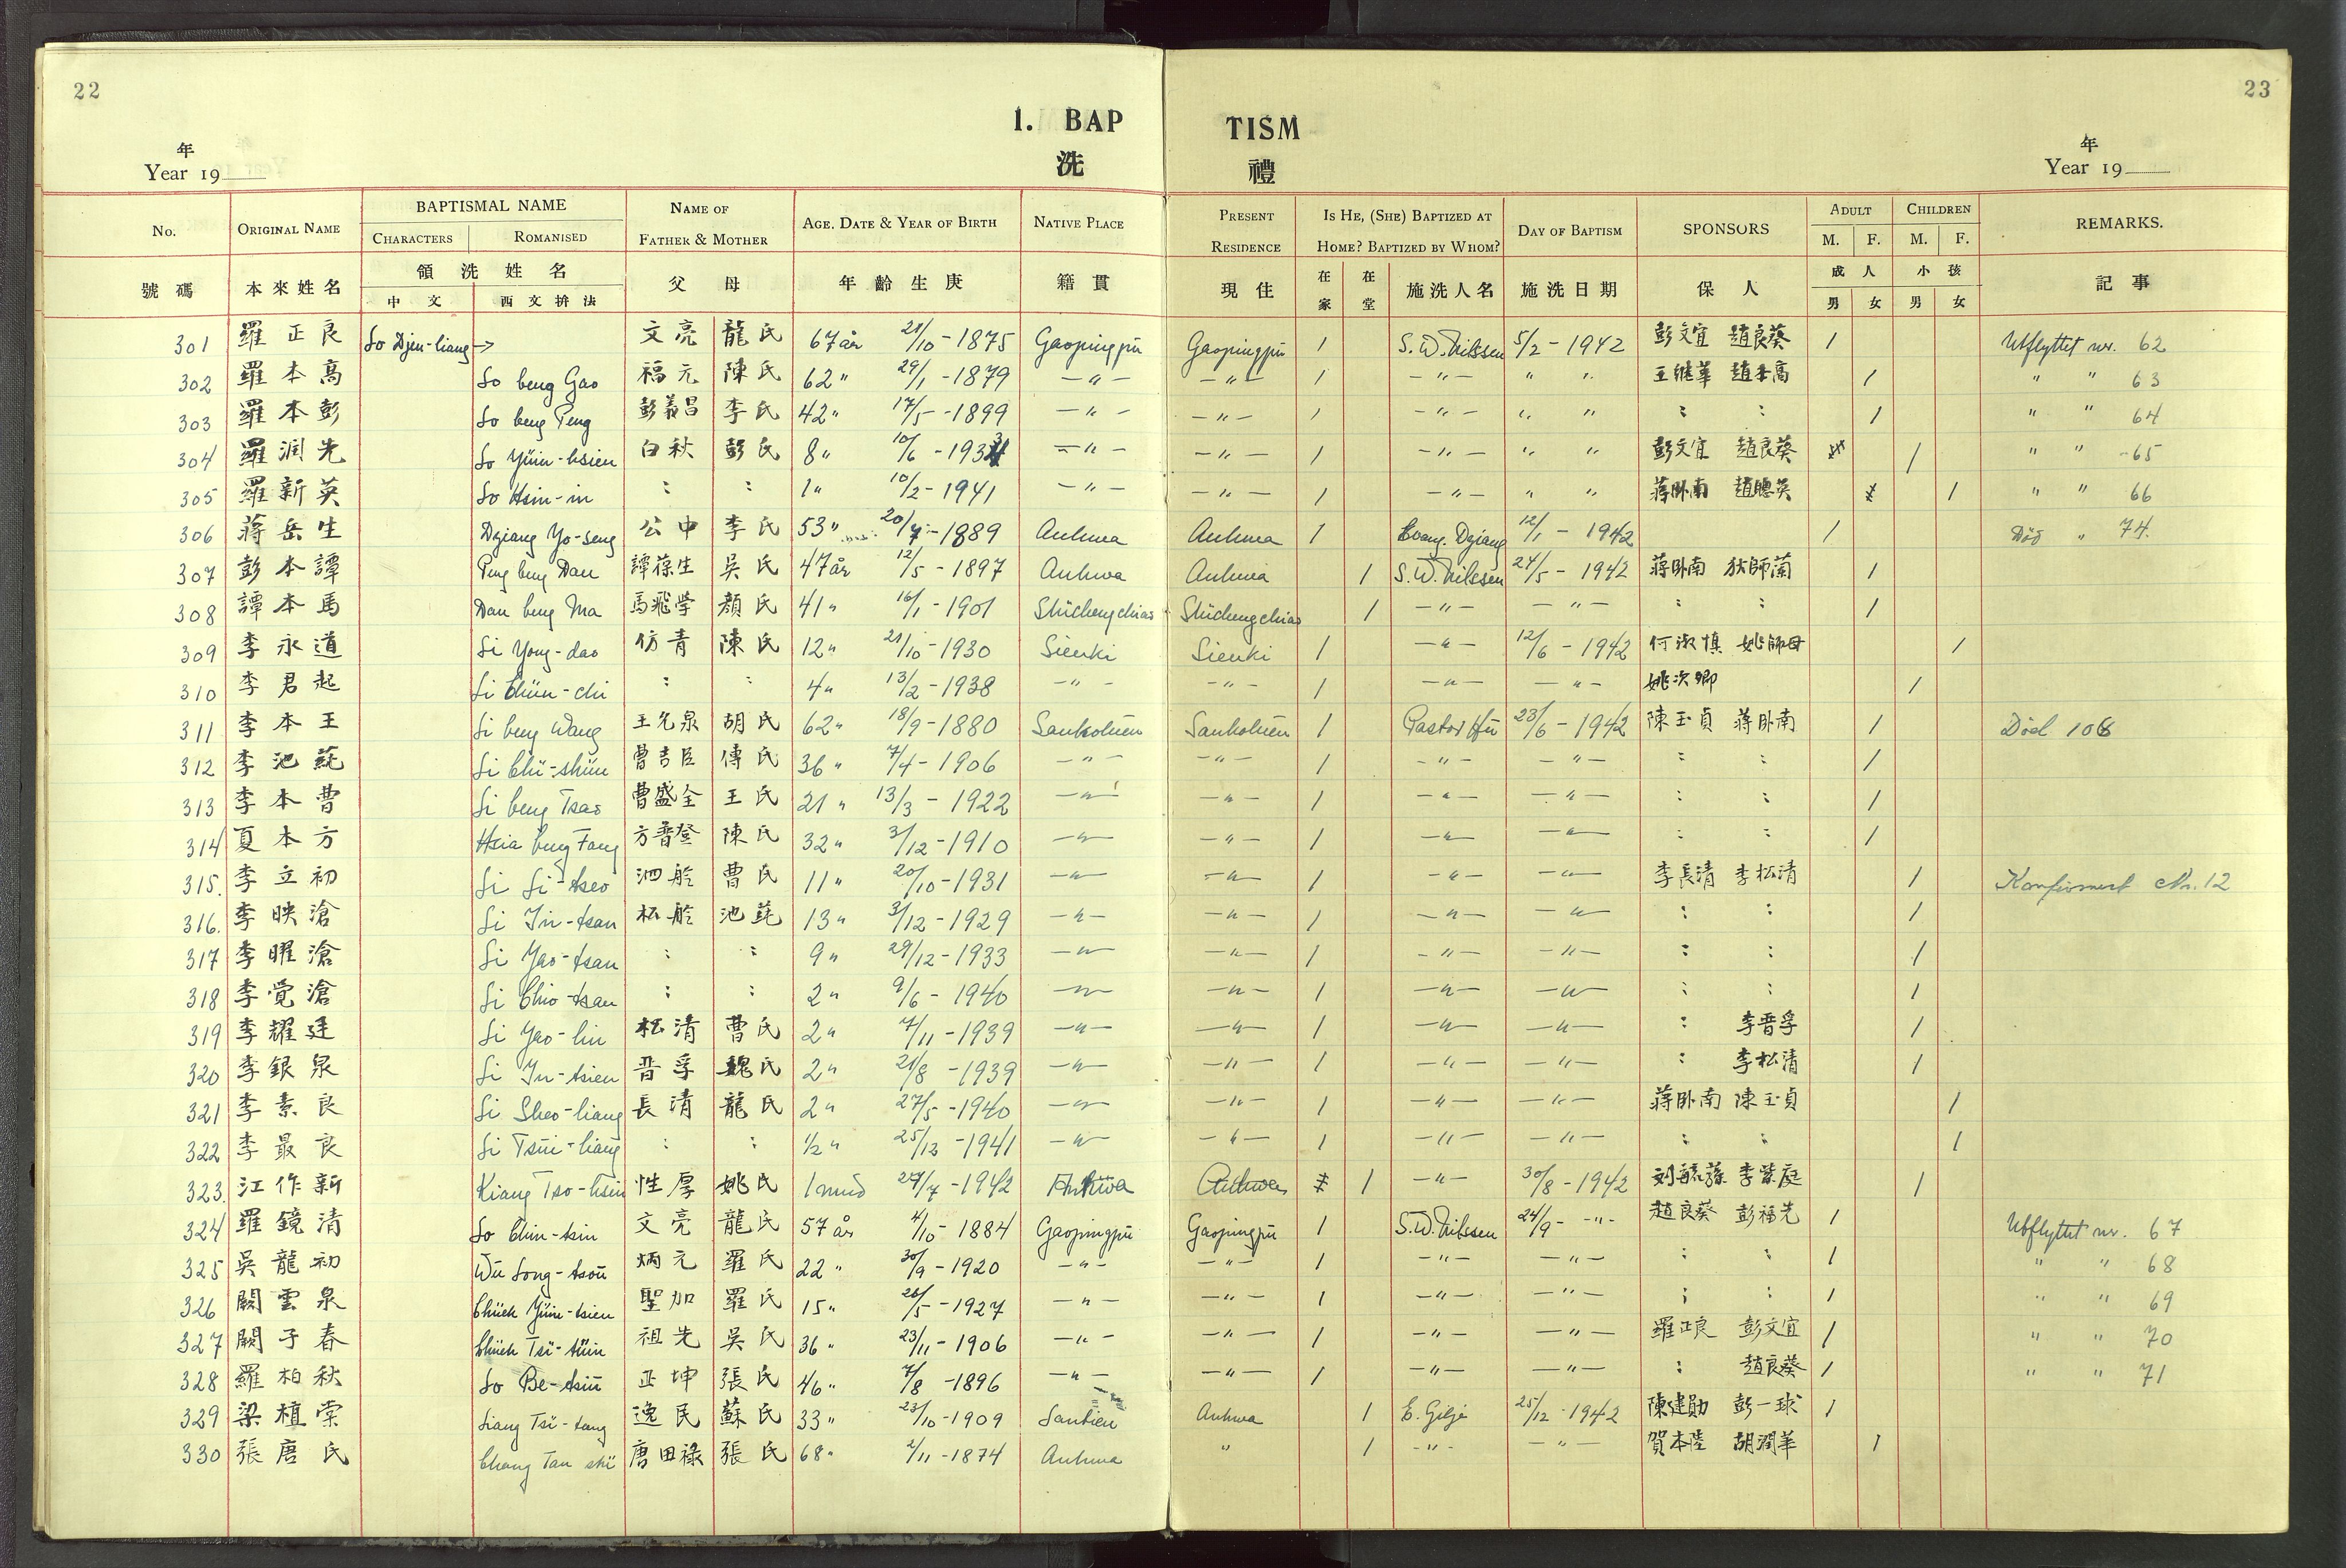 22
23
1. BAP TISM
洗 禮
年
Year 19
年
Year 19
No. ORIGINAL NAME BAPTISMAL NAME CHARACTERS ROMANISED NAME OF FATHER & MOTHER AGE. DATE & YEAR OF BIRTH NATIVE PLACE PRESENT RESIDENCE IS HE, (SHE) BAPTIZED AT HOME? BAPTIZED BY WHOM? DAY OF BAPTISM SPONSORS ADULT M. F. CHILDREN M. F. REMARKS.
號碼 本來姓名 領洗姓名 中文 西文拚法 父 母 年齡生庚 籍貫 現住 在家 在堂 施洗人名 施洗日期 保人 成人 男 女 小孩 男 女 記事
301 羅正良 Lo Djen-liang → 文亮 龍氏 67 år 21/10-1875 Gaopingpü Gaopingpü 1 S.W. Nilssen 5/2-1942 彭文宜 趙良葵 1 Utflyttet nr. 62
302 羅本高 Lo beng Gao 福元 陳氏 62 " 29/1-1879 -"- -"- 1 -"- " " 王继華 趙本高 1 " " 63
303 羅本彭 Lo beng Peng 彭義昌 李氏 42 " 17/5-1899 -"- -"- 1 -"- " " : : 1 " " 64
304 羅潤先 Lo Yüin-hsien 白秋 彭氏 8 " 10/6-1933 -"- -"- 1 -"- " " 彭文宜 趙良葵 1 " " 65
305 羅新英 Lo Hsin-in : : 1 " 10/2-1941 -"- -"- 1 -"- " " 蔣卧南 趙聰英 1 " " 66
306 蔣岳生 Dziang Yo-seng 公中 李氏 53 " 20/7-1889 Anhwa Anhwa 1 Evang. Dziang 12/1-1942 1 Död " 74.
307 彭本譚 Peng beng Dan 譚葆生 吳氏 47 år 12/5-1897 Anhwa Anhwa 1 S.W. Nilssen 24/5-1942 蔣卧南 狄師蘭 1
308 譚本馬 Dan beng Ma 馬飛學 顏氏 41 " 16/1-1901 Shïchengchiao Shïchengchiao 1 -"- -"- : : 1
309 李永道 Li Yong-dao 仿青 陳氏 12 " 21/10-1930 Sienki Sienki 1 -"- 12/6-1942 何淑慎 姚師母 1
310 李君起 Li Chün-chi : : 4 " 13/2-1938 -"- -"- 1 -"- -"- 姚次卿 1
311 李本王 Li beng Wang 王允泉 胡氏 62 " 18/9-1880 Sankohüen Sankohüen 1 Pastor Hü 23/6-1942 陳玉貞 蔣卧南 1 Död 106
312 李池蓴 Li Chï-shün 曹吉臣 傅氏 36 " 7/4-1906 -"- -"- 1 -"- -"- : : 1
313 李本曹 Li beng Tsao 曹盛全 王氏 21 " 13/3-1922 -"- -"- 1 -"- -"- : : 1
314 夏本方 Hsia beng Fang 方普登 陳氏 32 " 3/12-1910 -"- -"- 1 -"- -"- : : 1
315. 李立初 Li Li-tseo 泗舲 曹氏 11 " 20/10-1931 -"- -"- 1 -"- -"- 李長清 李松清 1 Konfirmert Nr. 12
316. 李映滄 Li Jin-tsan 松舲 池蓴 13 " 3/12-1929 -"- -"- 1 -"- -"- : : 1
317 李曜滄 Li Yao-tsan : : 9 " 29/12-1933 -"- -"- 1 -"- -"- : : 1
318 李覺滄 Li Chio-tsan : : 2 " 9/6-1940 -"- -"- 1 -"- -"- : : 1
319 李耀廷 Li Yao-lin 松清 曹氏 2 " 7/11-1939 -"- -"- 1 -"- -"- : 李晋孚 1
320 李銀泉 Li Jn-tsien 晋孚 魏氏 2 " 21/8-1939 -"- -"- 1 -"- -"- : 李松清 1
321 李素良 Li Sheo-liang 長清 龍氏 2 " 27/5-1940 -"- -"- 1 -"- -"- 蔣卧南 陳玉貞 1
322 李最良 Li Tsüi-liang : : 1/2 " 25/12-1941 -"- -"- 1 -"- -"- : : 1
323. 江作新 Kiang Tso-hsin 性厚 姚氏 1 mnd 27/7-1942 Anhwa Anhwa 1 -"- 30/8-1942 1
324 羅鏡清 Lo Chin-tsin 文亮 龍氏 57 år 4/10-1884 Gaopingpü Gaopingpü 1 S.W. Nilssen 24/9- -"- 趙良葵 彭福先 1 Utflyttet nr. 67
325 吳龍初 Wü Long-tsoü 炳元 羅氏 22 " 30/9-1920 -"- -"- 1 -"- -"- : : 1 " " 68
326 闕雲泉 Chüeh Yüin-tsien 聖加 羅氏 15 " 26/5-1927 -"- -"- 1 -"- -"- : : 1 " " 69
327 闕子春 Chüeh Tsï-tüin 祖先 吳氏 36 " 23/11-1906 -"- -"- 1 -"- -"- 羅正良 彭文宜 1 " " 70
328 羅柏秋 Lo Be-tsiü 正坤 張氏 46 " 7/8-1896 -"- -"- 1 -"- -"- : 趙良葵 1 " " 71
329 梁植棠 Liang Tsï-tang 逸民 蘇氏 33 " 23/10-1909 Lantien Anhwa 1 E. Gilje 25/12-1942 陳建勛 彭一球 1
330 張唐氏 Chang Tan shï 唐田祿 張氏 68 " 2/11-1874 Anhwa " 1 -"- -"- 賀本陸 胡潤華 1